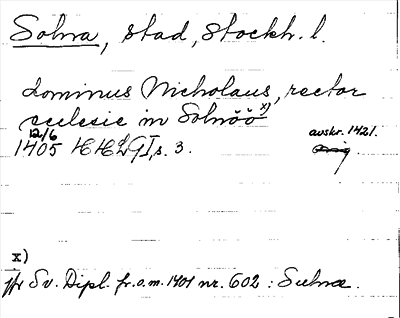 Solna, stad, Stockh. l.
Dominus Nicholaus, rector
ecclesie in Solnöö x)
12/6 avskr. 1421.
1405 HHLGI, s. 3. orig
x)
jfr Sv. Dipl. fr. o. m. 1401 nr. 602 : Sulnæ.